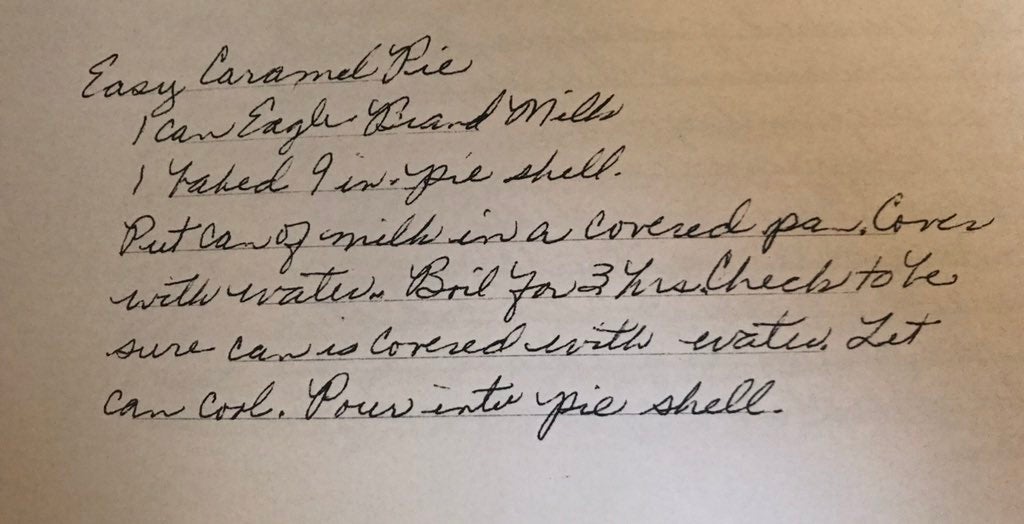 Easy Caramel Pie
1 can Eagle Brand Milk
1 baked 9 in. pie shell.
Put can of milk in a covered pan. Cover
with water. Boil for 3 hrs. Check to be
sure can is covered with water. Let
can cool. Pour into pie shell.